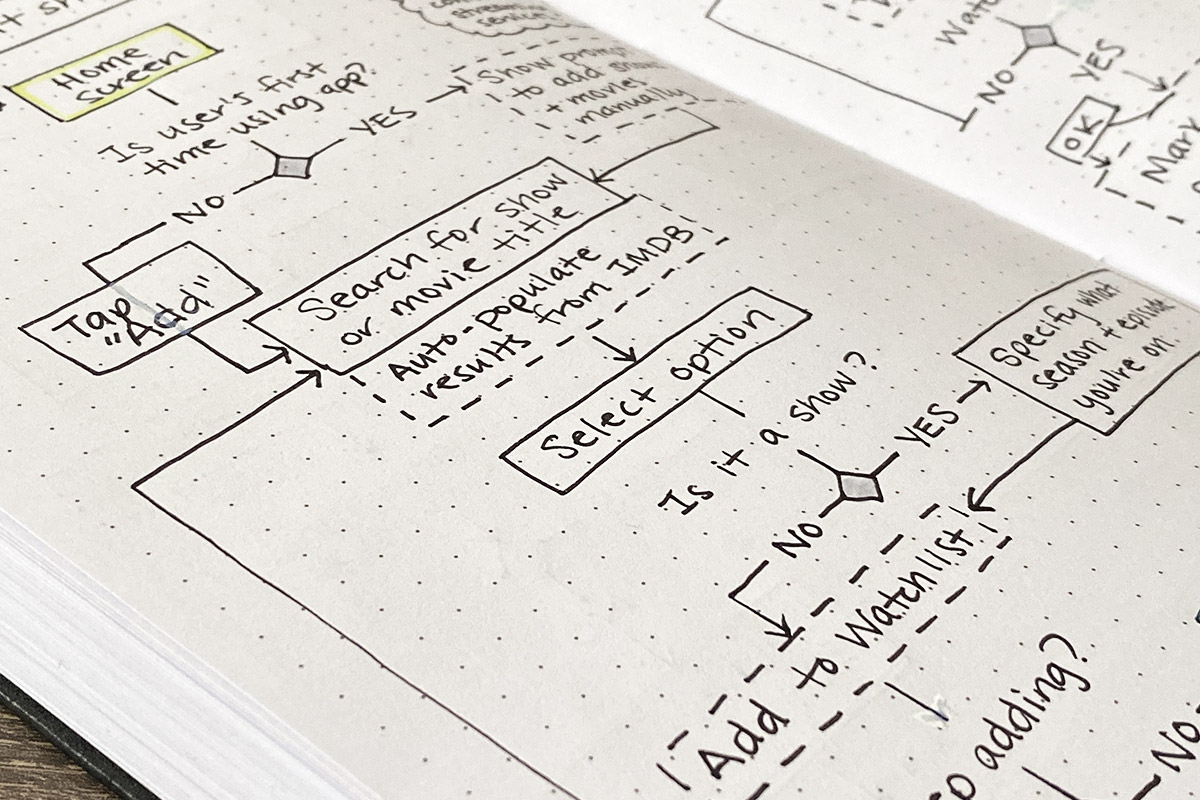 Home
Screen
streaming
service
Is user's first
time using app?
YES
NO
Show prompt
to add show
+ movies
manually
Tap
"Add"
Search for show
or movie title
Auto-populate
results from IMDB
Select option
Is it a show?
YES
NO
Specify what
season + episode
you're on.
Add to Watchlist
adding?
No
NO
YES
OK
Mark